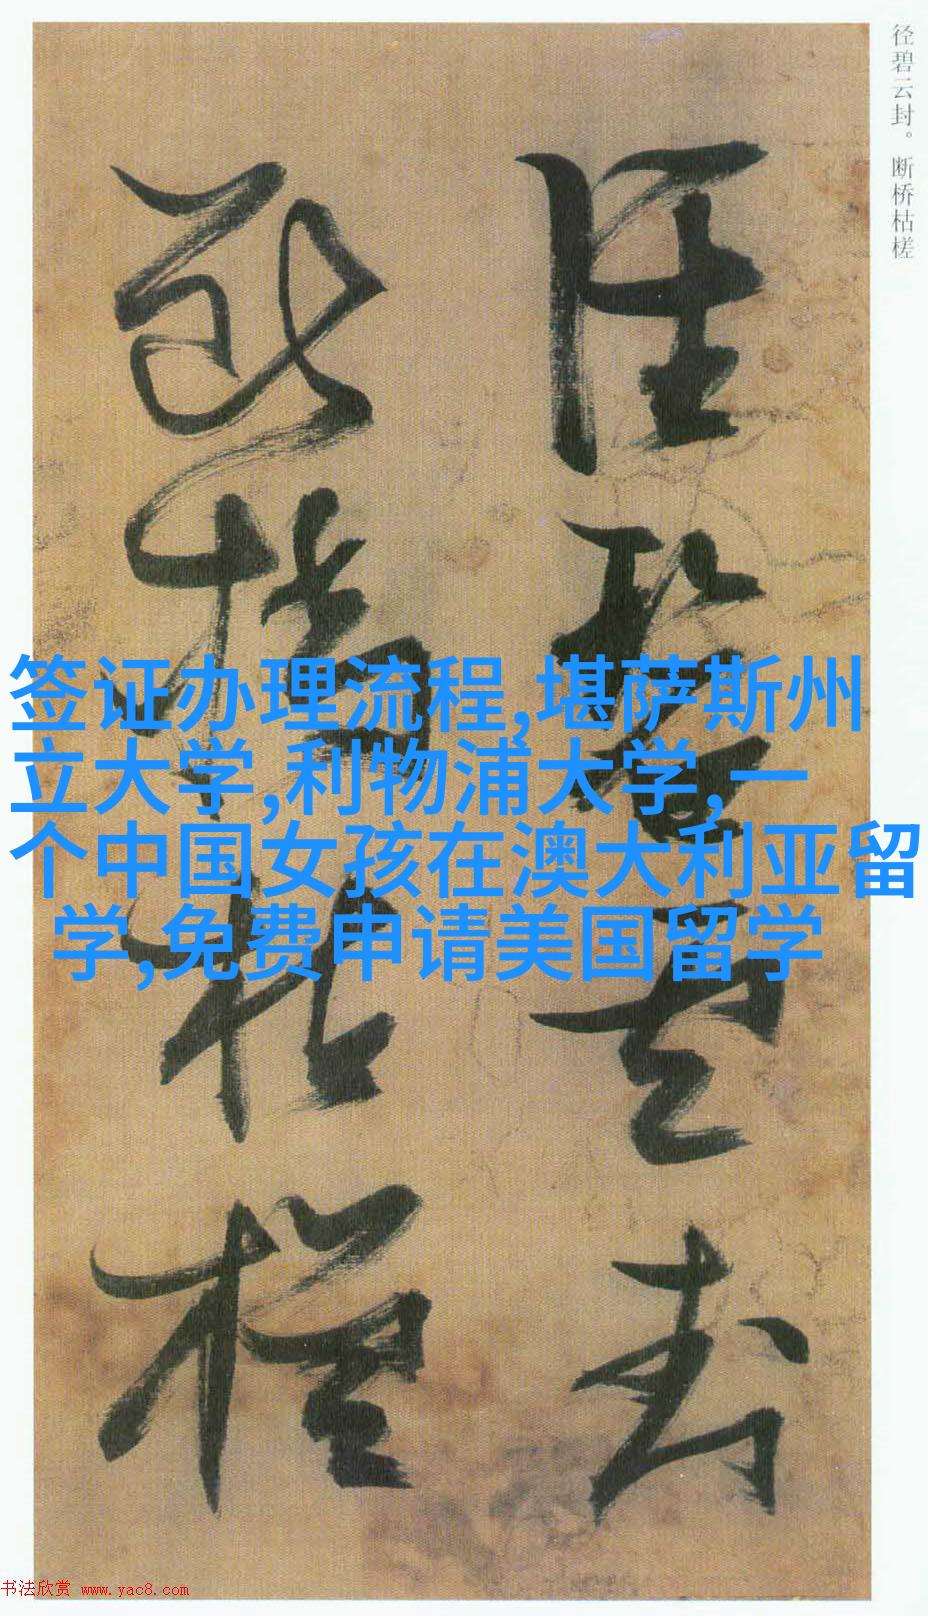 径碧云封。断桥枯槎
径碧云封
断桥枯槎
签证办理流程,堪萨斯州
立大学,利物浦大学,一
个中国女孩在澳大利亚留
学,免费申请美国留学
书法欣赏 www.yac8.com